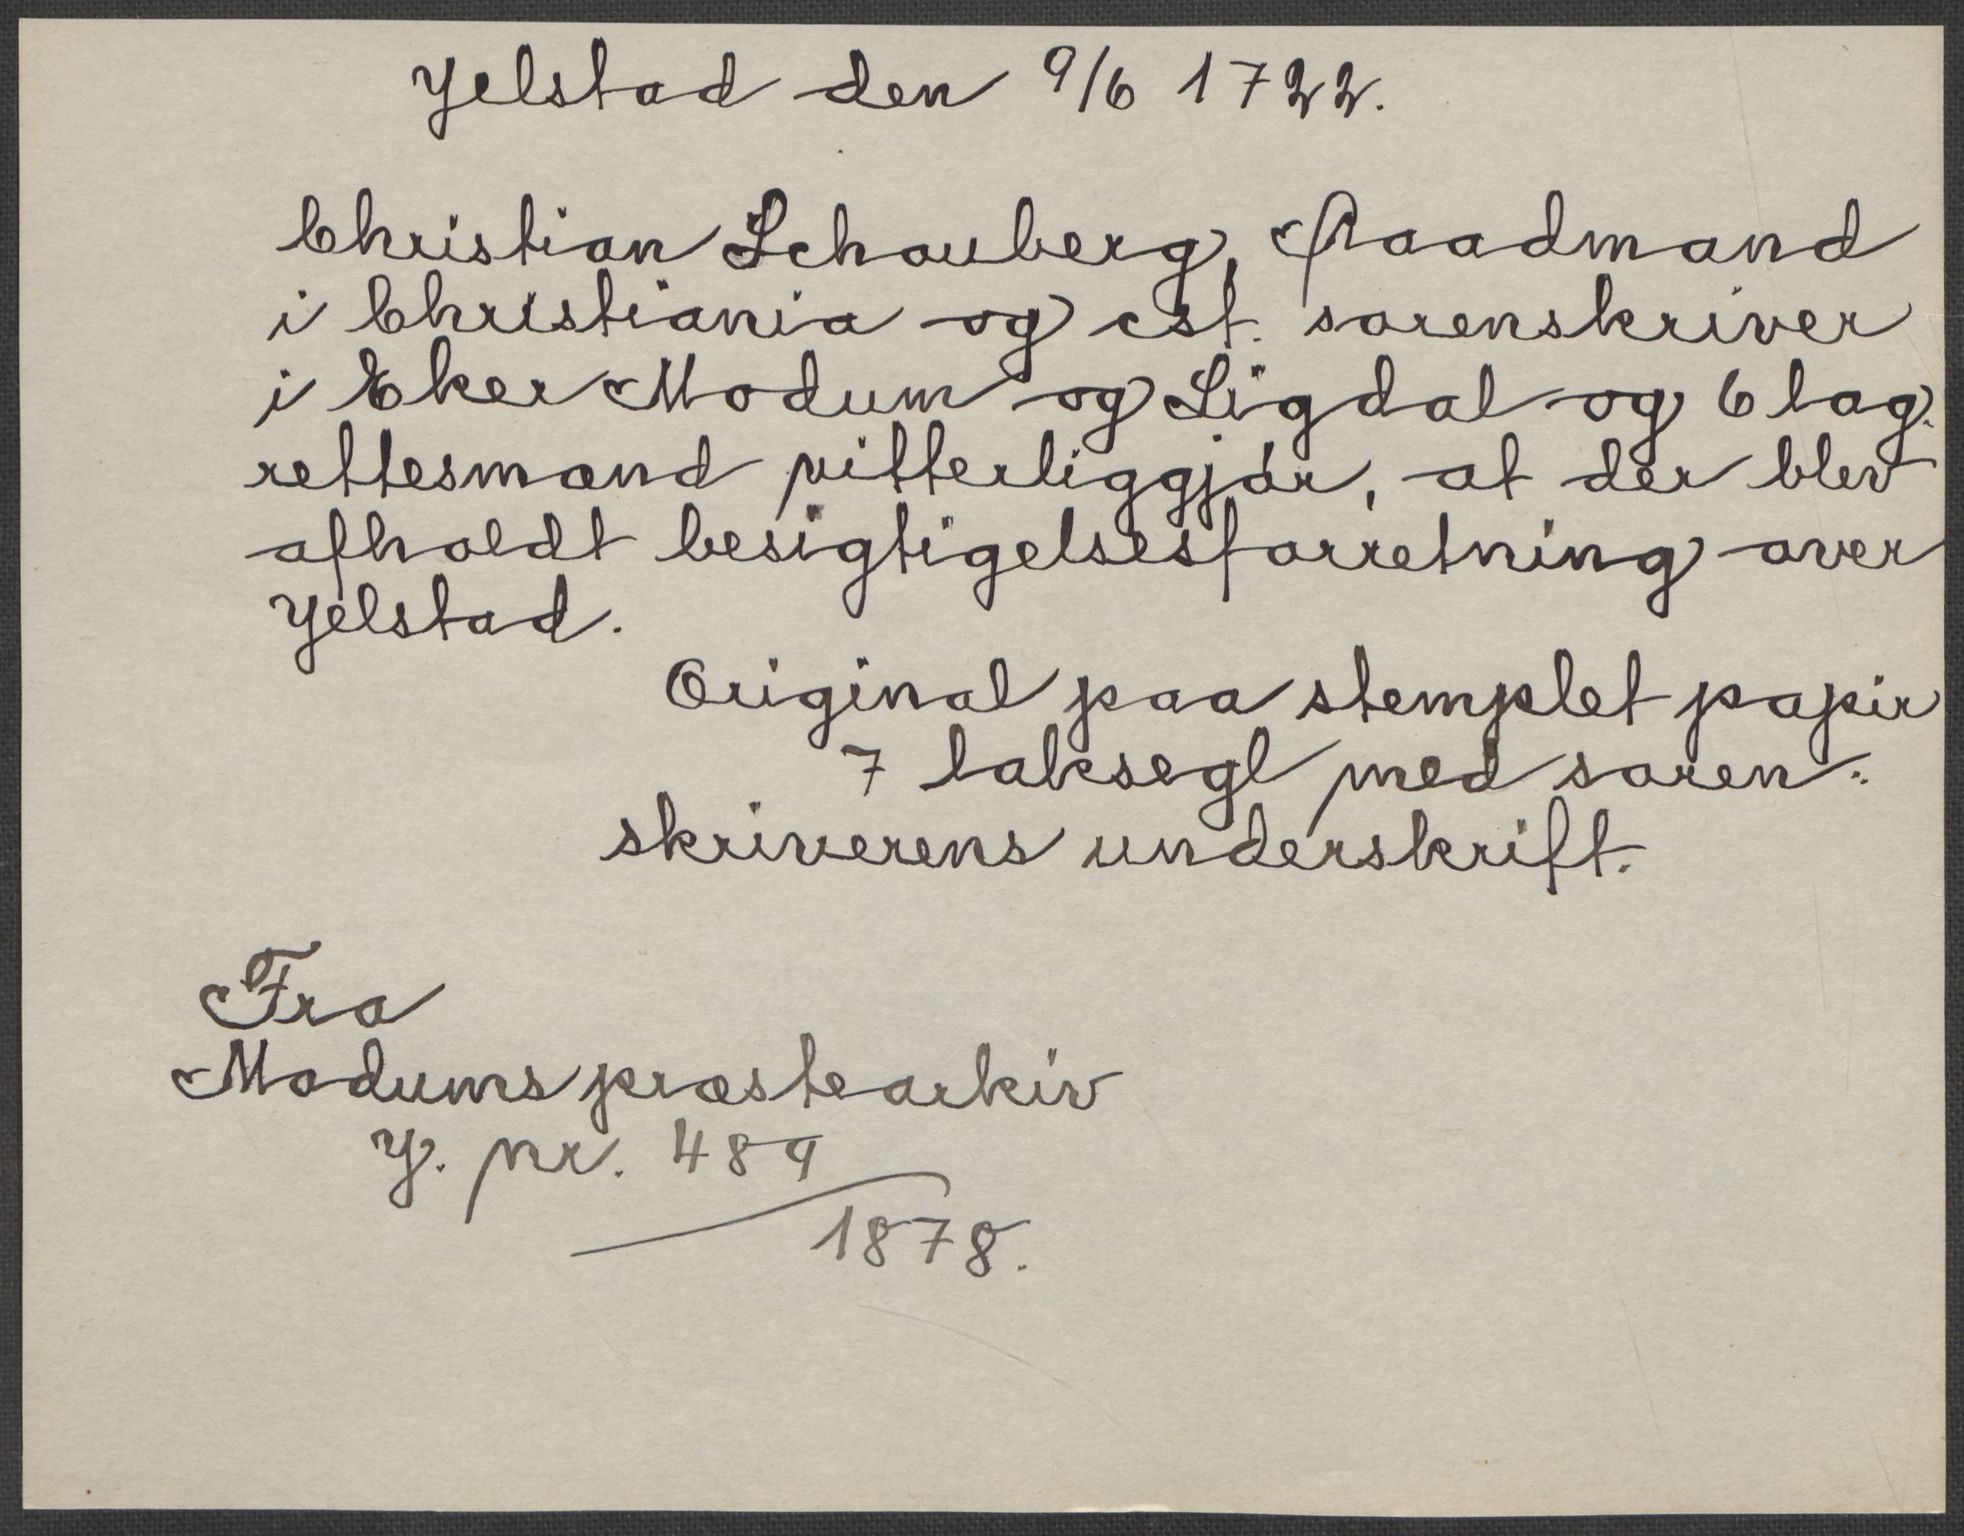 Yelstad den 9/6 1722.
Christian Schouberg, Raadmand
i Christiania og cst. sorenskriver
i Eker Modum og Sigdal og 6 lag-
rettesmænd vitterliggjör, at der blev
afholdt besigtigelsesforretning over
Yelstad.
Original paa stemplet papir
7 laksegl med soren-
skriverens underskrift.
Fra
Modums præstearkiv
y. nr. 489
1878.